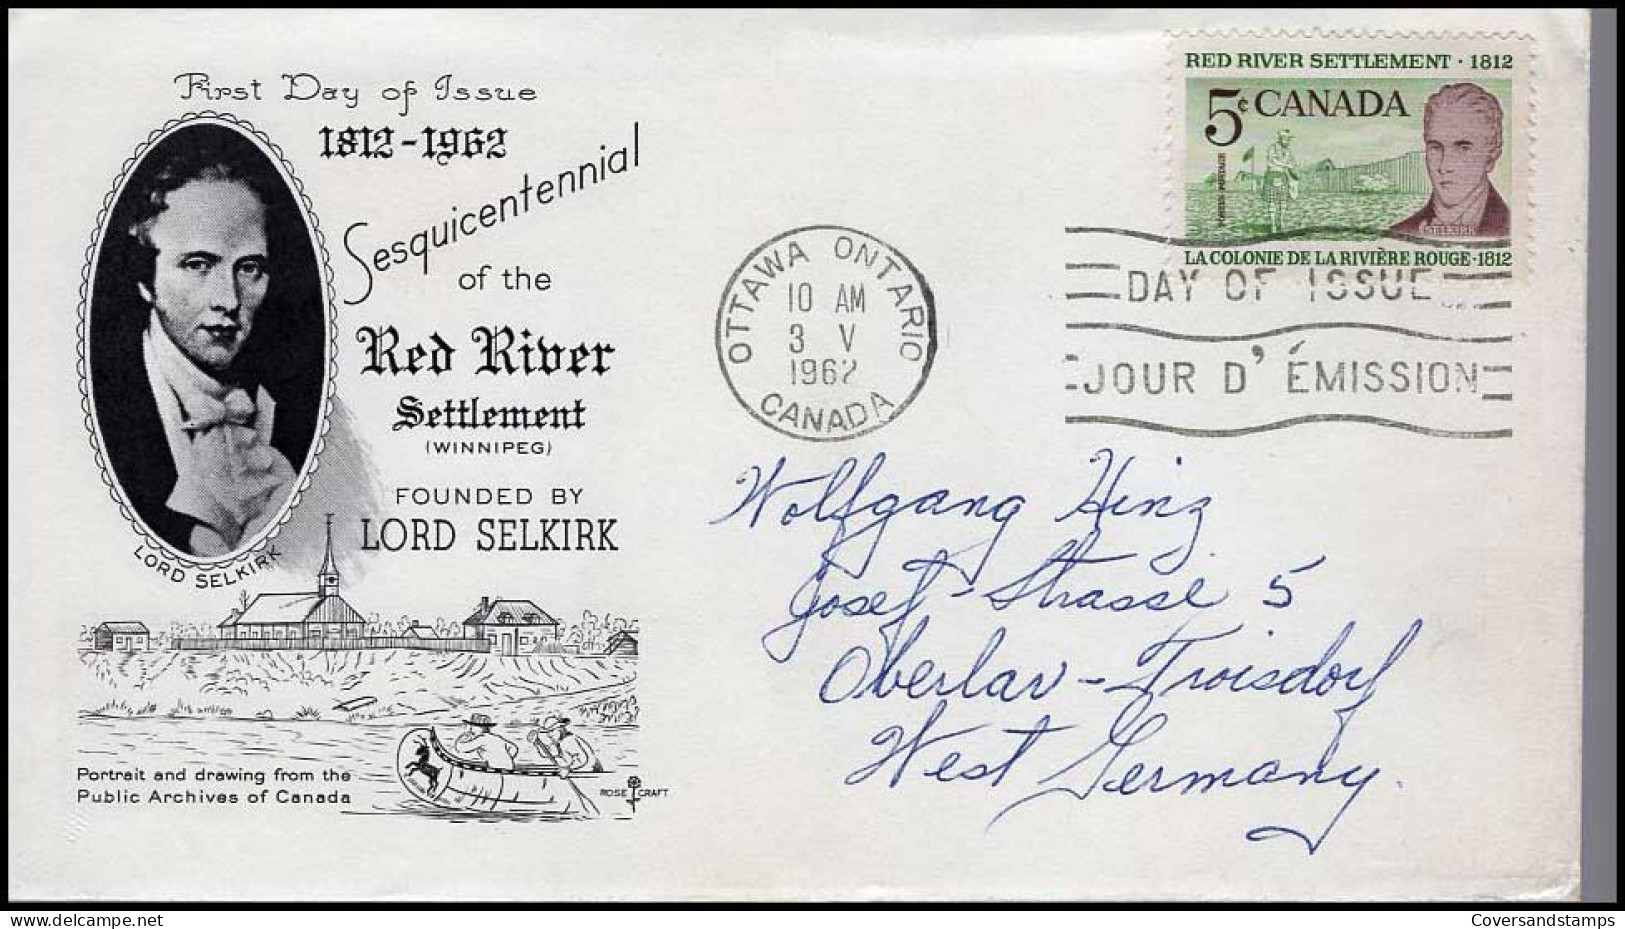 First Day of Issue
1812-1962
Sesquicentennial
of the
Red River
Settlement
(WINNIPEG)
FOUNDED BY
LORD SELKIRK
LORD SELKIRK
Portrait and drawing from the
Public Archives of Canada
ROSE CRAFT
RED RIVER SETTLEMENT · 1812
5¢ CANADA
POSTES POSTAGE
SELKIRK
LA COLONIE DE LA RIVIÈRE ROUGE · 1812
OTTAWA ONTARIO
10 AM
3 V
1962
CANADA
DAY OF ISSUE
JOUR D'ÉMISSION
Wolfgang Hinz
Josef-Strasse 5
Oberlar-Troisdorf
West Germany.
coversandstamps.com
Coversandstamps